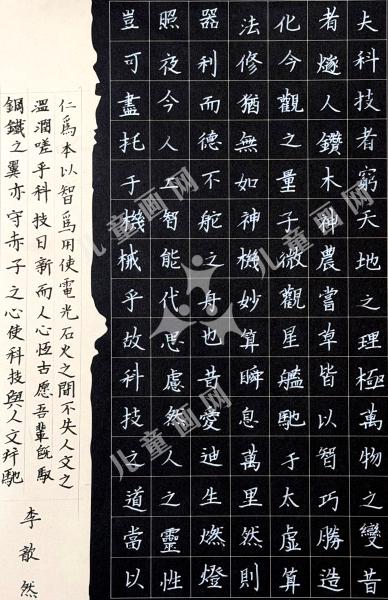 夫科技者窮天地之理極萬物之變昔
者燧人鑽木神農嘗草皆以智巧勝造
化今觀之量子微觀星艦馳于太虛算
法修猶無如神機妙算瞬息萬里然則
器利而德不舵之舟也昔愛迪生燃燈
照夜今人工智能代思慮然人之靈性
豈可盡托于機械乎故科技之道當以
仁爲本以智爲用使電光石火之間不失人文之
溫潤嗟乎科技日新而人心恆古愿吾輩既馭
鋼鐵之翼亦守赤子之心使科技與人文并馳
李歆然
儿童画网
儿童画网
儿童画网
儿童画网